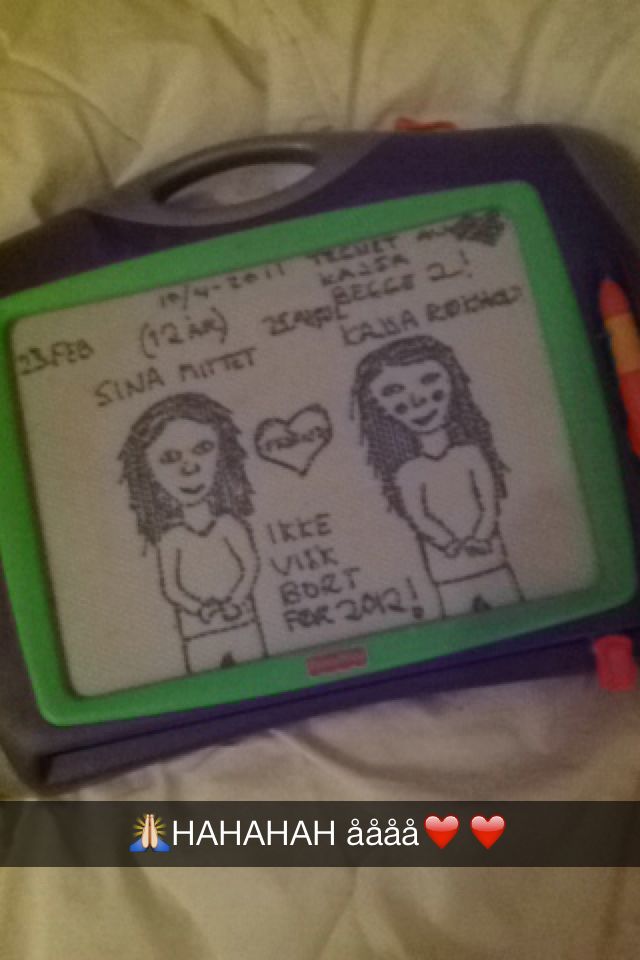 10/4-2011
TEGNET AV
KAJSA
BEGGE 2!
23.FEB
(12 ÅR)
SINA MITTET
KAJSA
IKKE
VISK
BORT
FØR 2012!
🙏HAHAHAH åååå❤️ ❤️